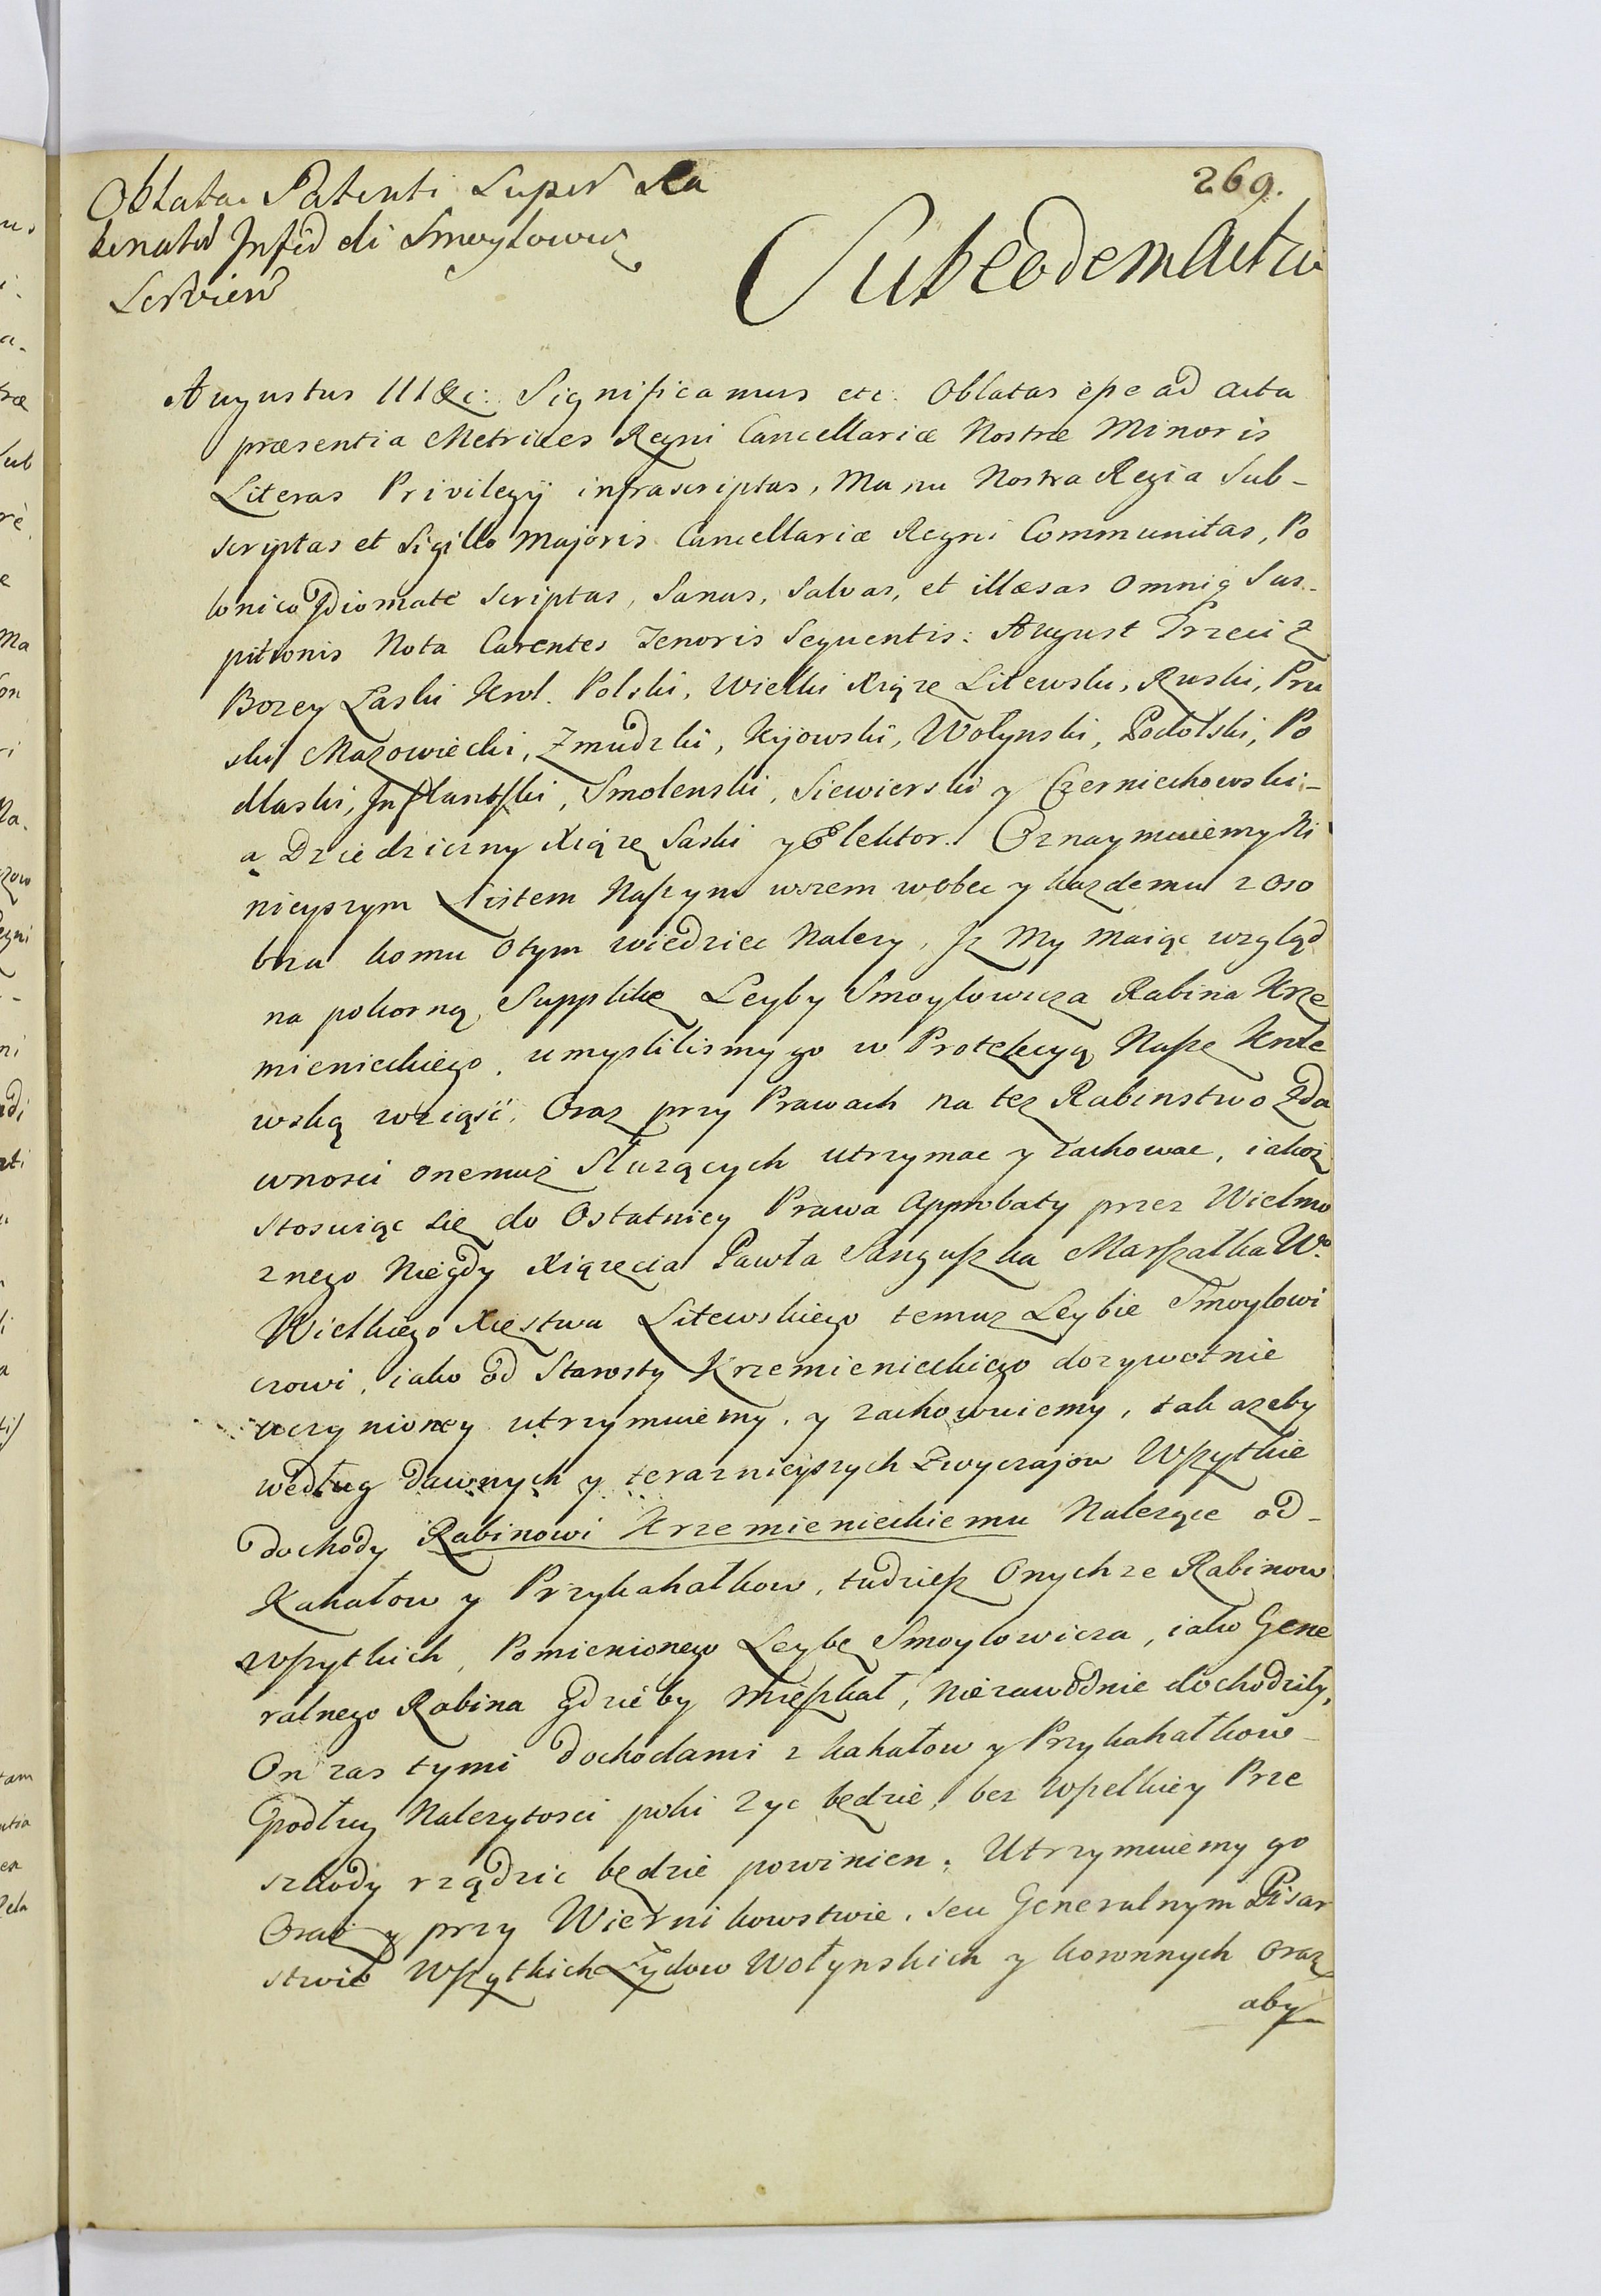 269.
Oblata Patenti Super Ra
binatu Infid di Smoylowicz
Servien
Sub eodem Actu
Augustus III &c: Significamus etc. Oblatas eße ad acta
præsentia Metrices Regni Cancellariæ Nostræ Minoris
Literas Privilegij infrascriptas, Manu Nostra Regia Sub-
scriptas et Sigillo Majoris Cancellariæ Regni Communitas, Po
lonico Idiomate scriptas, Sanas, Salvas, et illæsas omniq Sus-
pitionis Nota Carentes Tenoris Sequentis: August Trzeci z
Bozey Łaski Krol Polski, Wielki Xiąze Litewski, Ruski, Pru
ski Mazowiecki, Zmudzki, Kijowski, Wołynski, Podolski, Po
dlaski, Inflantski, Smolenski, Siewierski y Czerniechowski-
a Dziedziczny Xiąze Saski y Elektor. Oznaymuiemy Ni
nieyszym Listem Naszym wszem wobec y kazdemu z oso
bna komu Otym wiedziec Nalezy, Jz My maiąc wzgląd
na pokorną Supplikę Leyby Smoylowicza Rabina Krze
mienieckiego, umyslilismy go w Protekcyą Naßę Krole
wską wziąść. Oraz przy Prawach na tez Rabinstwo Zda
wnosci onemuz Słuzących utrzymac y zachowac, iakoz
stosuiąc się do Ostatniey Prawa Approbaty przez Wielmo
znego Niegdy Xiązęcia Pawła Sanguszka Marszałka Wo
Wielkiego Xięstwa Litewskiego temuz Leybie Smoylowi
czowi, iako od Starosty Krzemienieckiego dozywotnie
uczynioney utrzymuiemy, y zachowuiemy, tak azeby
według dawnych y teraznieyszych Zwyczajow Wszytkie
dochody Rabinowi Krzemienieckiemu Nalezące od-
Kahałow y Przykahałkow, tudziesz Onychze Rabinow
wszytkich, Pomienionego Leybę Smoylowicza, iako Gene
ralnego Rabina gdzieby mieszkał, niezawodnie dochodziły,
On zas tymi dochodami z kahałow y Przykahałkow-
podług Nalezytosci poki zyc będzie, bez wszelkiey Prze
szkody rządzic będzie powinien. Utrzymuiemy go
Oraz y przy Wiernikowstwie, seu Generalnym Pisar
stwie Wszytkich Zydow Wołynskich y koronnych oraz
aby